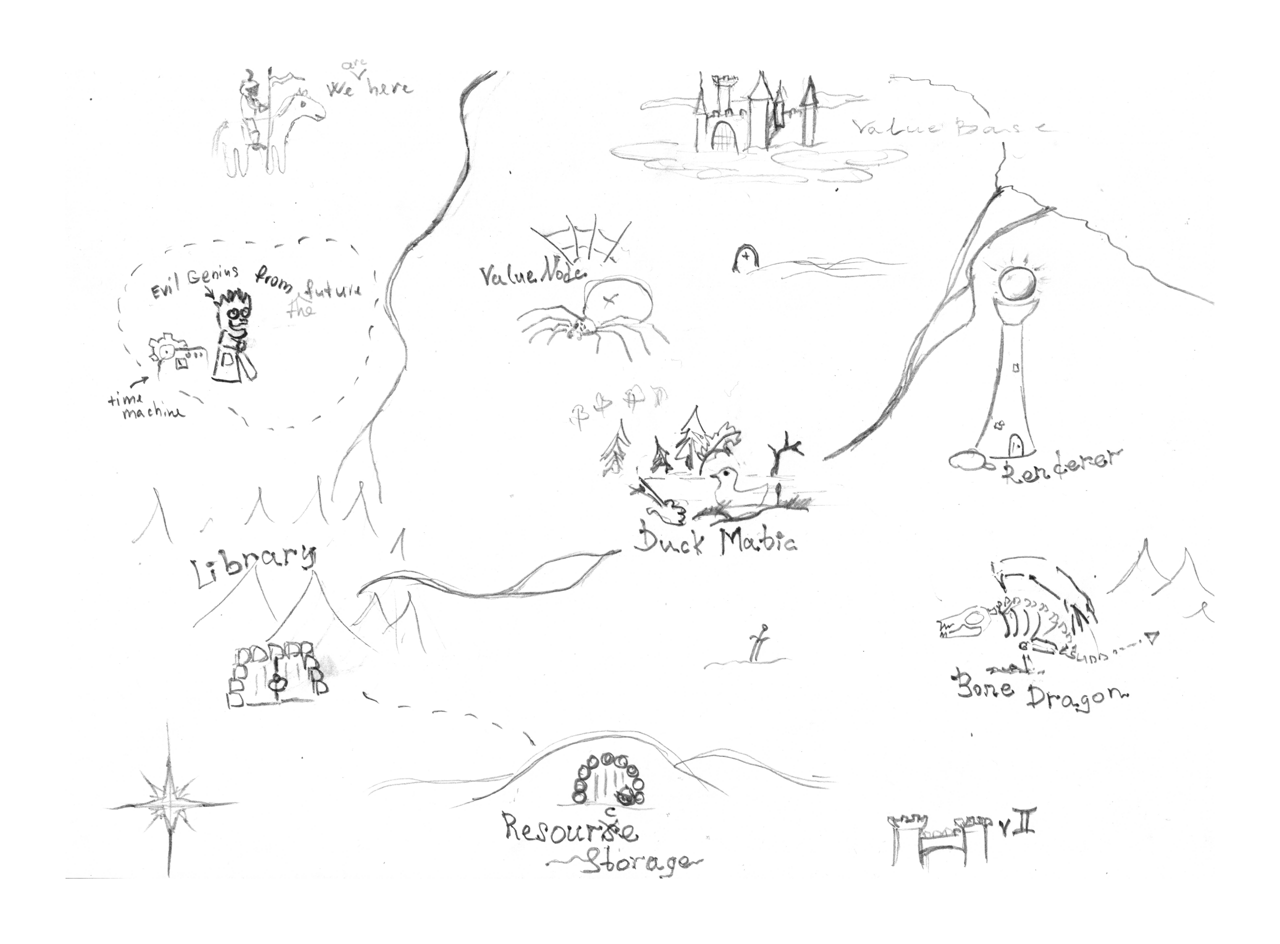 We are here
Value Base
Evil Genius from the future
Value Node
time
machine
Renderer
Duck Mabic
Library
Bone Dragon
Resource
Storage
v II